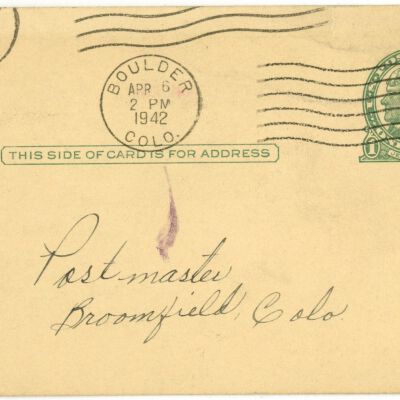 BOULDER
APR 6
2 PM
1942
COLO.
THIS SIDE OF CARD IS FOR ADDRESS
1
Postmaster
Broomfield, Colo.